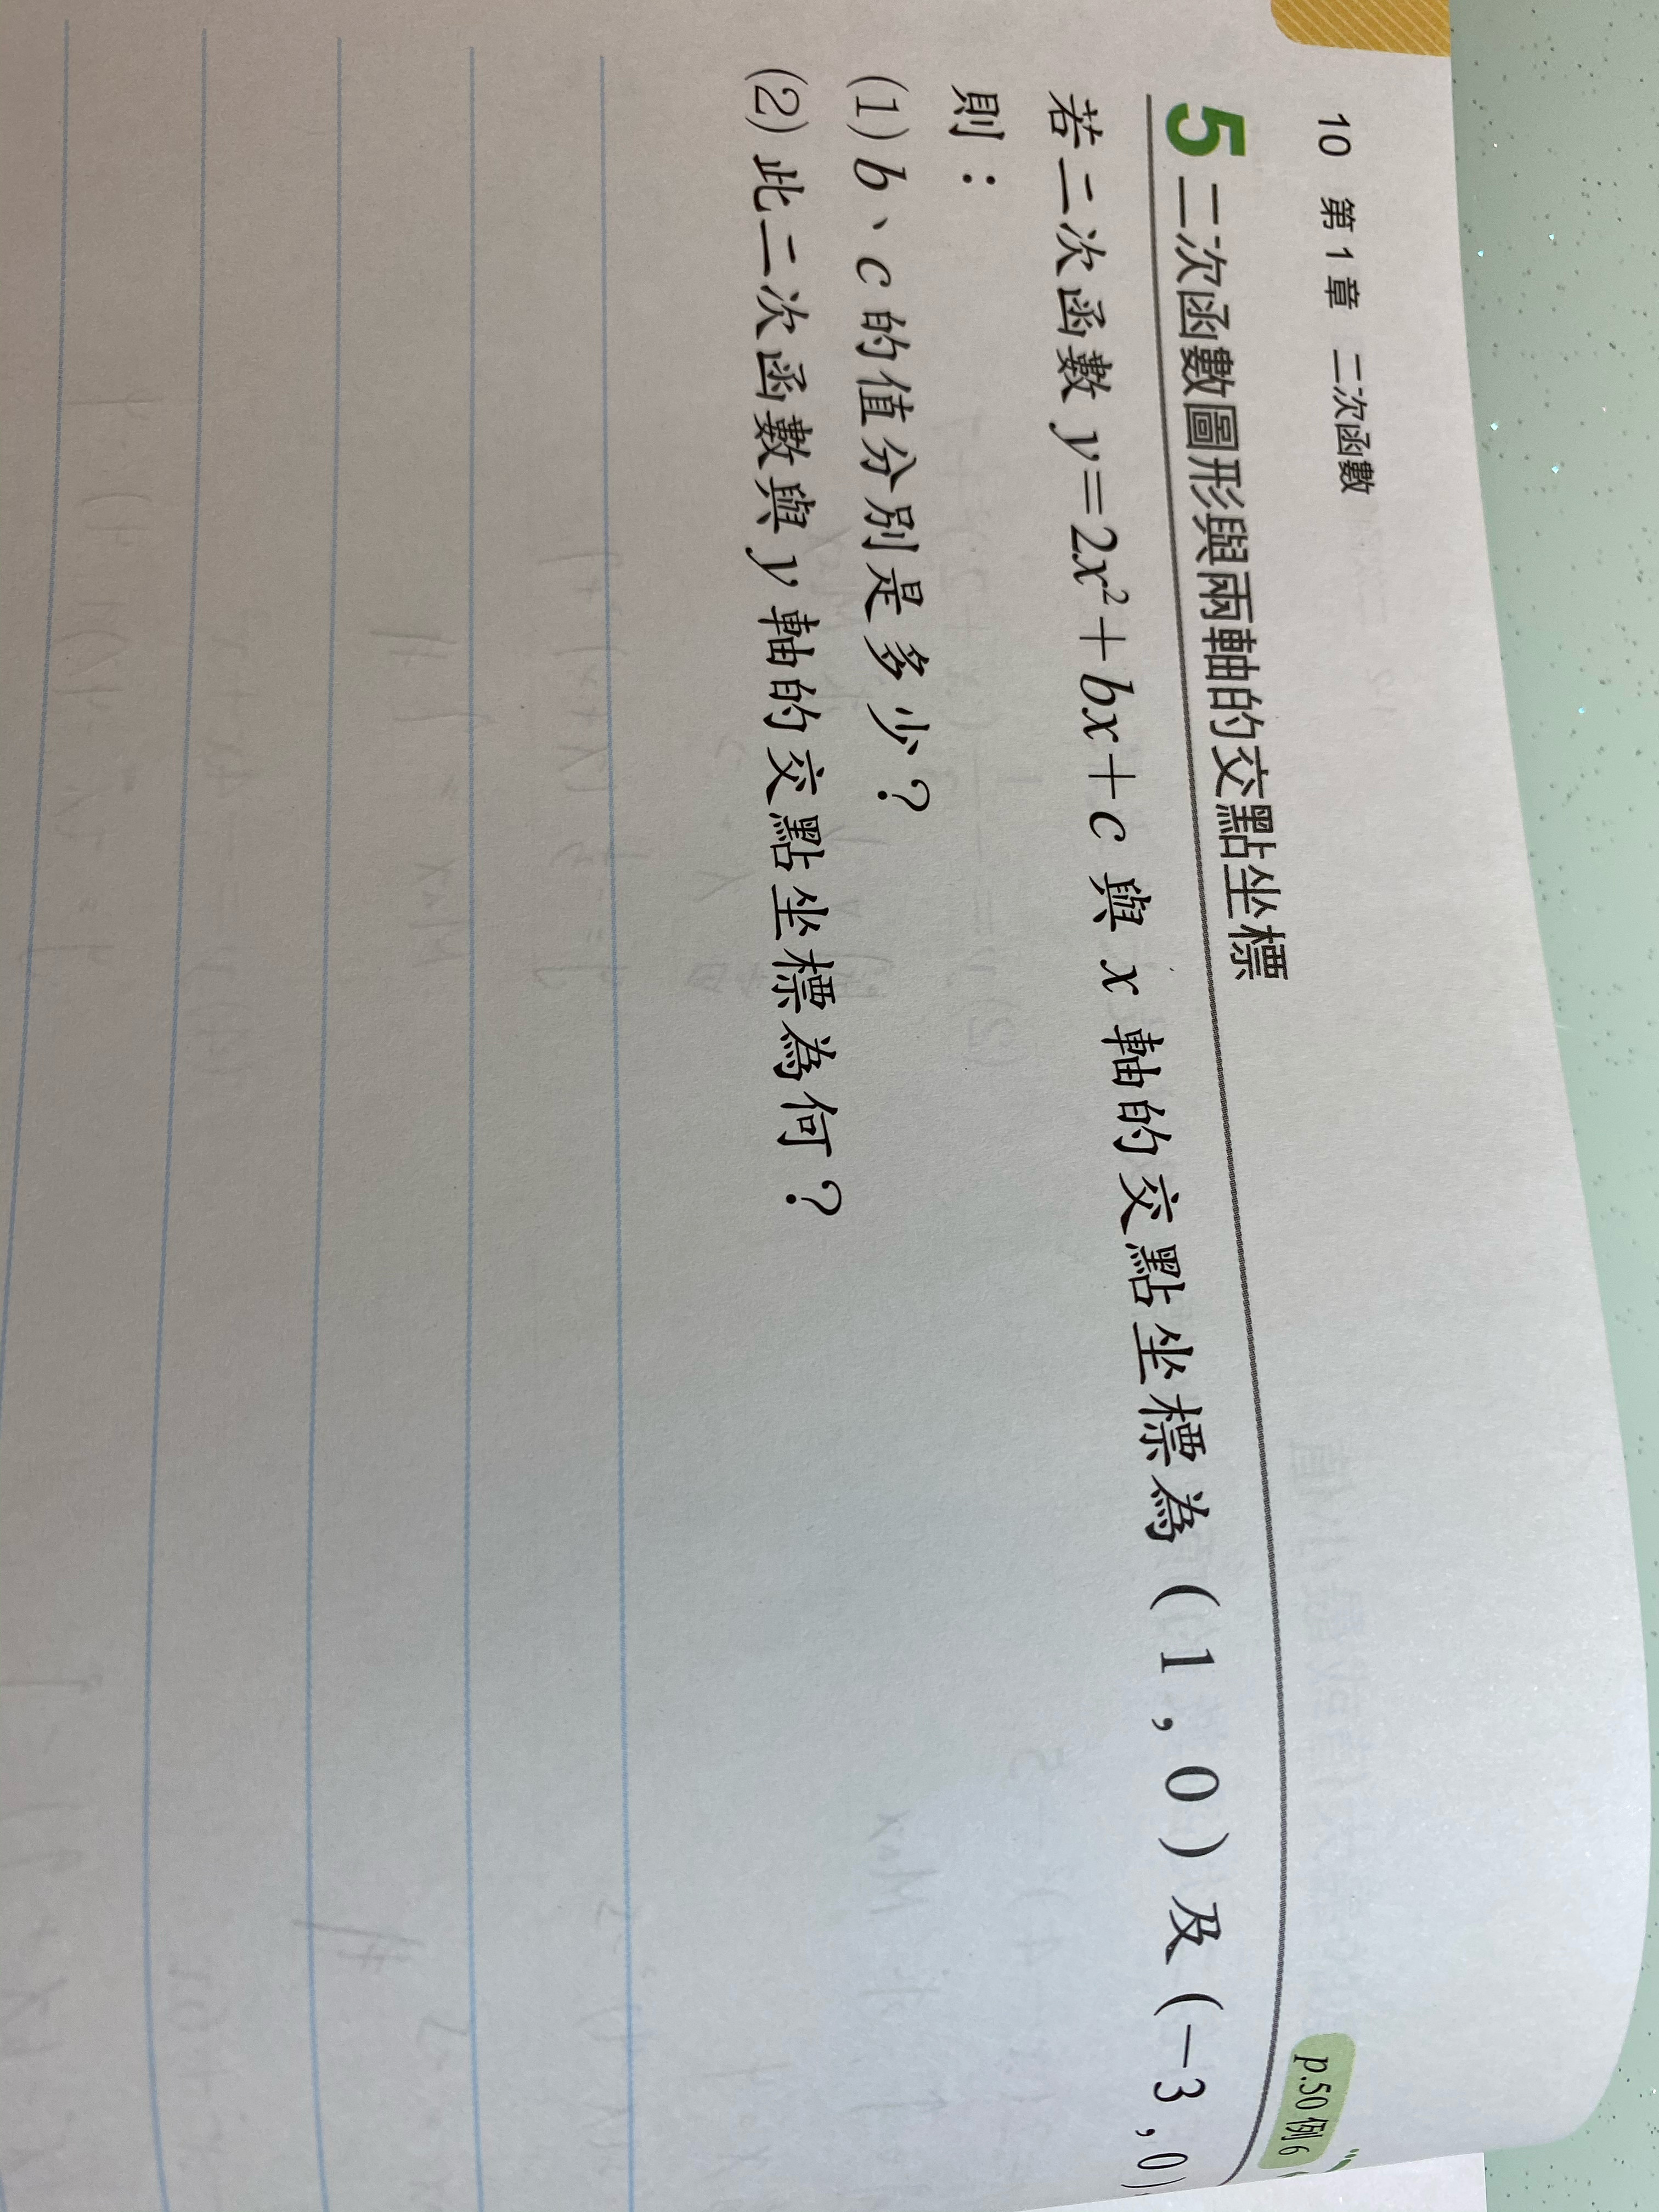 10 第1章 二次函數
5 二次函數圖形與兩軸的交點坐標
p.50 例6
若二次函數 y=2x²+bx+c 與 x 軸的交點坐標為 ( 1 , 0 ) 及 ( −3 , 0 )
則：
(1) b、c 的值分別是多少？
(2) 此二次函數與 y 軸的交點坐標為何？